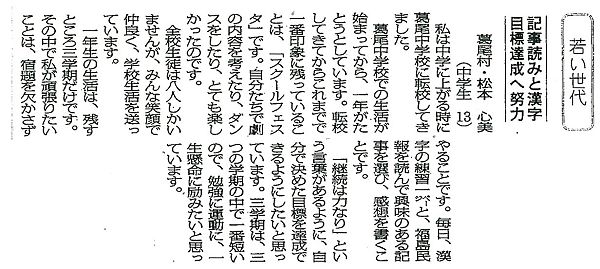 若い世代
記事読みと漢字
目標達成へ努力
葛尾村・松本 心美
（中学生 13）
私は中学に上がる時に
葛尾中学校に転校してき
ました。
葛尾中学校での生活が
始まってから、一年がた
とうとしています。転校
してきてからこれまでで
一番印象に残っているこ
とは、「スクールフェス
タ」です。自分たちで劇
の内容を考えたり、ダン
スをしたり、とても楽し
かったのです。
全校生徒は八人しかい
ませんが、みんな笑顔で
仲良く、学校生活を送っ
ています。
一年生の生活は、残す
ところ三学期だけです。
その中で私が頑張りたい
ことは、宿題を欠かさず
やることです。毎日、漢
字の練習一㌻と、福島民
報を読んで興味のある記
事を選び、感想を書くこ
とです。
「継続は力なり」とい
う言葉があるように、自
分で決めた目標を達成で
きるようにしたいと思っ
ています。三学期は、三
つの学期の中で一番短い
ので、勉強に運動に、一
生懸命に励みたいと思っ
ています。